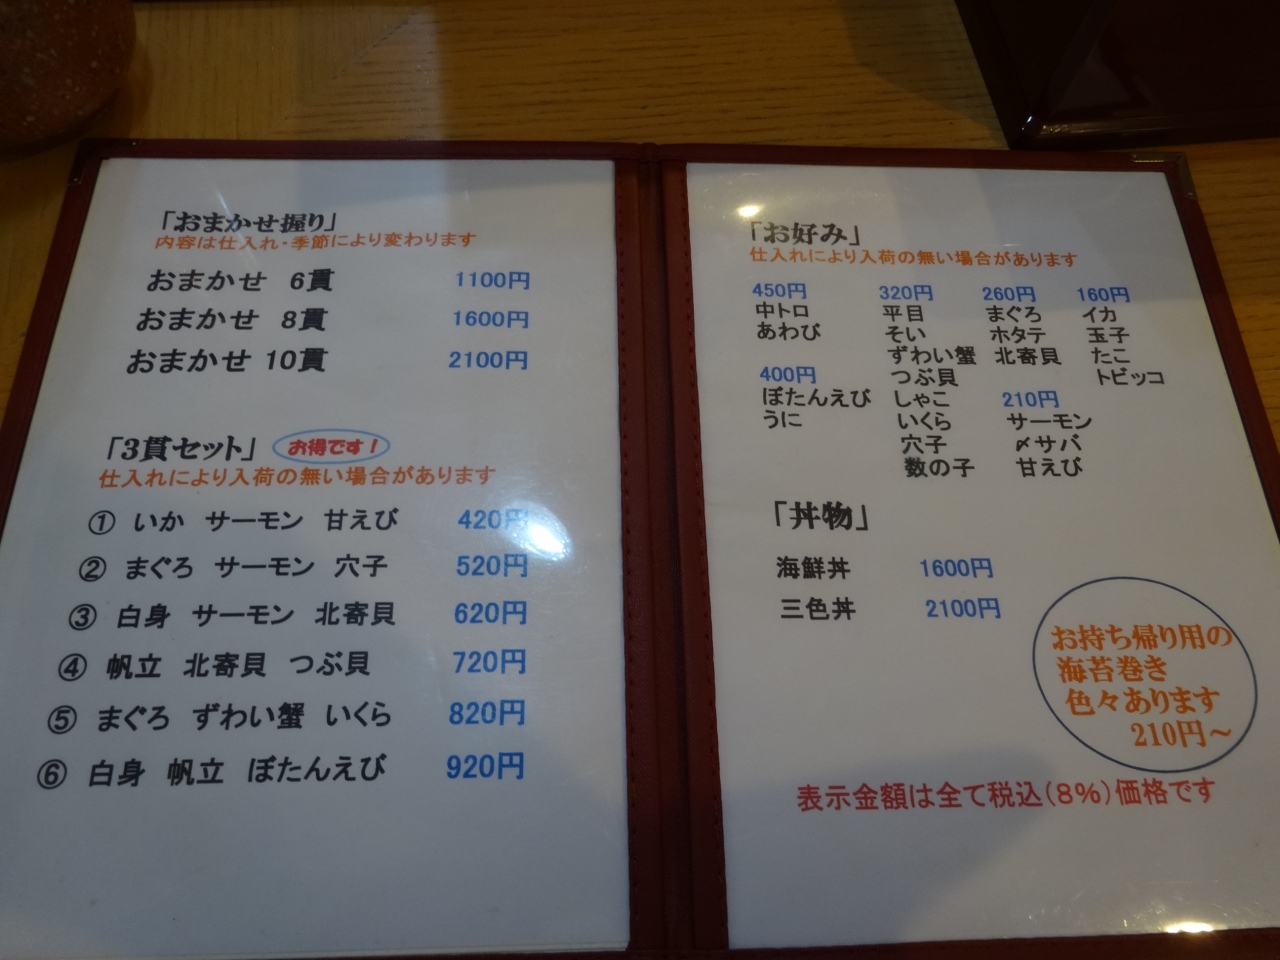 「おまかせ握り」
内容は仕入れ・季節により変わります
おまかせ 6貫 1100円
おまかせ 8貫 1600円
おまかせ 10貫 2100円
「3貫セット」 お得です！
仕入れにより入荷の無い場合があります
① いか サーモン 甘えび 420円
② まぐろ サーモン 穴子 520円
③ 白身 サーモン 北寄貝 620円
④ 帆立 北寄貝 つぶ貝 720円
⑤ まぐろ ずわい蟹 いくら 820円
⑥ 白身 帆立 ぼたんえび 920円
「お好み」
仕入れにより入荷の無い場合があります
450円
中トロ
あわび
400円
ぼたんえび
うに
320円
平目
そい
ずわい蟹
つぶ貝
しゃこ
いくら
穴子
数の子
260円
まぐろ
ホタテ
北寄貝
210円
サーモン
〆サバ
甘えび
160円
イカ
玉子
たこ
トビッコ
「丼物」
海鮮丼 1600円
三色丼 2100円
お持ち帰り用の
海苔巻き
色々あります
210円～
表示金額は全て税込(8%)価格です